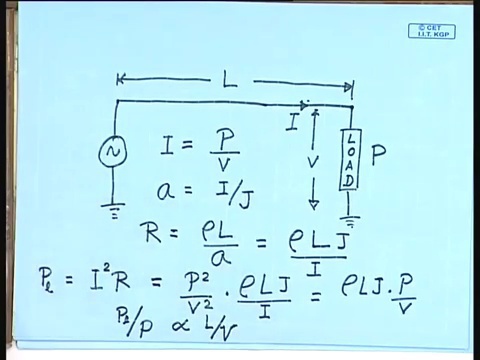 © CET
I.I.T. KGP
L
I
I = P/V
V
LOAD
P
a = I/J
R = ρL/a = ρLJ/I
Pₗ = I²R = P²/V² · ρLJ/I = ρLJ · P/V
Pₗ/P ∝ L/V